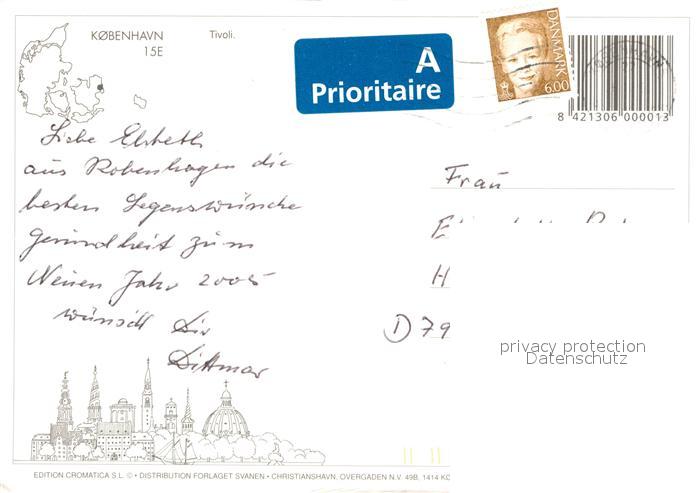 KØBENHAVN
15E
Tivoli.
A
Prioritaire
DANMARK
6.00
8 421306 000013
Liebe Elsbeth
aus Kobenhagen die
besten Segenswünsche
Gesundheit zum
Neuen Jahr 2005
wünscht Dir
Dittmar
Frau
E
H
D 79
privacy protection
Datenschutz
EDITION CROMATICA S.L. © • DISTRIBUTION FORLAGET SVANEN • CHRISTIANSHAVN, OVERGADEN N.V. 49B, 1414 KO